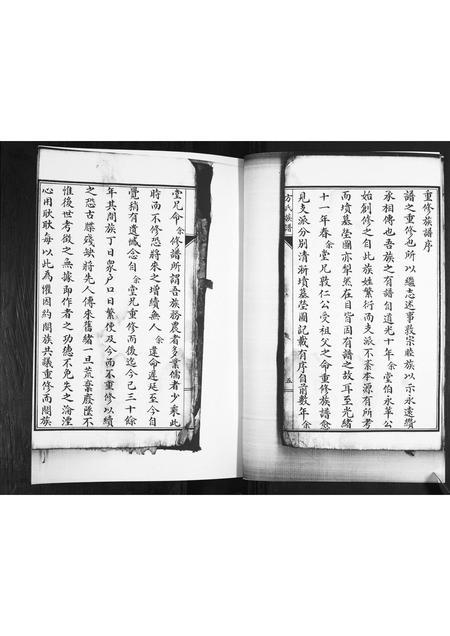 重修族譜序
譜之重修也所以繼志述事敦宗睦族以示永遠纘
承相傳也吾族之有譜自道光十年余堂伯永草公
始創修之自此族姓繁衍而支派不紊本源有所考
而墳墓塋圖亦犁然在目皆因有譜之故耳至光緒
十一年春余堂兄敦仁公受祖父之命重修族譜愈
見支派分別清淅墳墓塋圖記載有序自前數年余
方氏族譜
五
堂兄命余修譜所謂吾族務農者多業儒者少乘此
時而不修恐將來之增續無人余違命遲延至今自
覺稿有遺憾念自余堂兄重修而後迄今已三十餘
年其間族丁日眾戶口日繁使及今而不重修以續
之恐古牒殘缺將先人傳來舊緒一旦荒棄廢墜不
惟後世考徵之無據即作者之功德不免失之淪湮
心用歉歉每以此為懼因約闔族共議重修而闔族